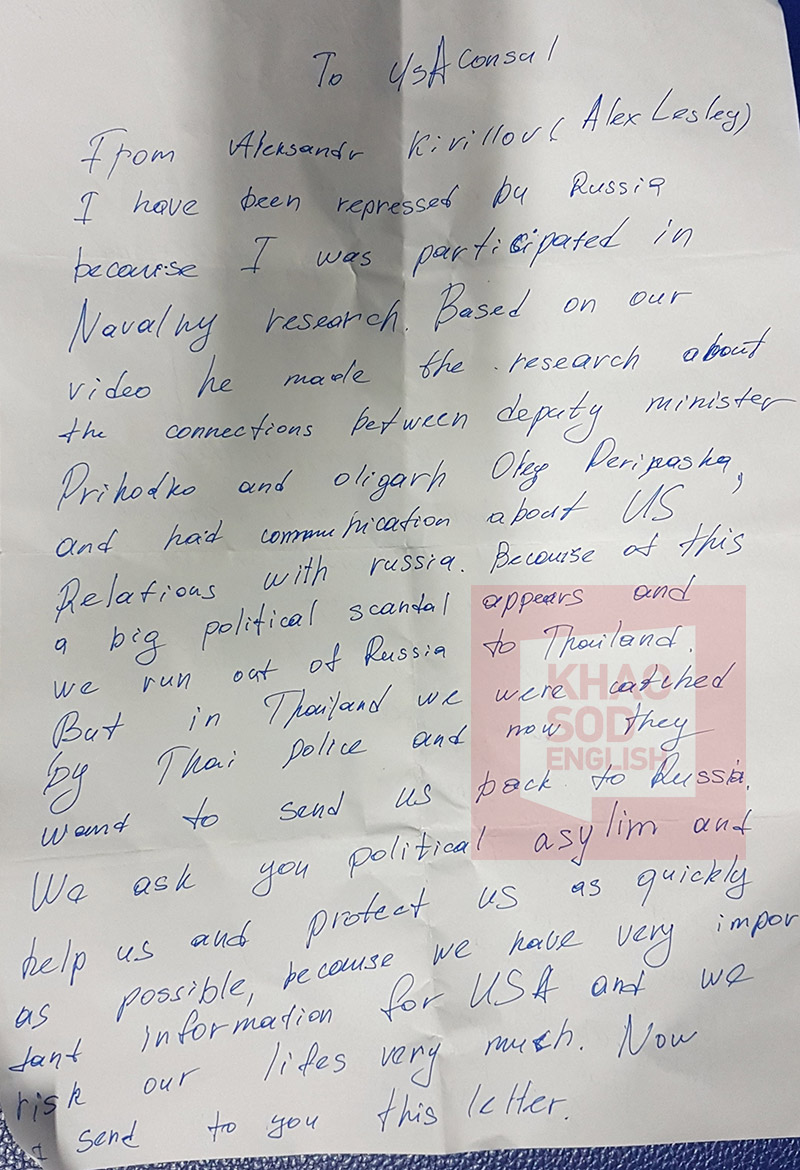 To USA Consul
From Aleksandr Kirillov (Alex Lesley)
I have been repressed by Russia
because I was participated in
Navalny research. Based on our
video he made the research about
the connections between deputy minister
Prihodko and oligarh Oleg Deripaska,
and had communication about US
Relations with russia. Because of this
a big political scandal appears and
we run out of Russia to Thailand.
But in Thailand we were catched
by Thai police and now they
want to send us back to Russia.
We ask you political asylim and
help us and protect us as quickly
as possible, because we have very impor
tant information for USA and we
risk our lifes very much. Now
I send to you this letter.
KHAO
SOD
ENGLISH